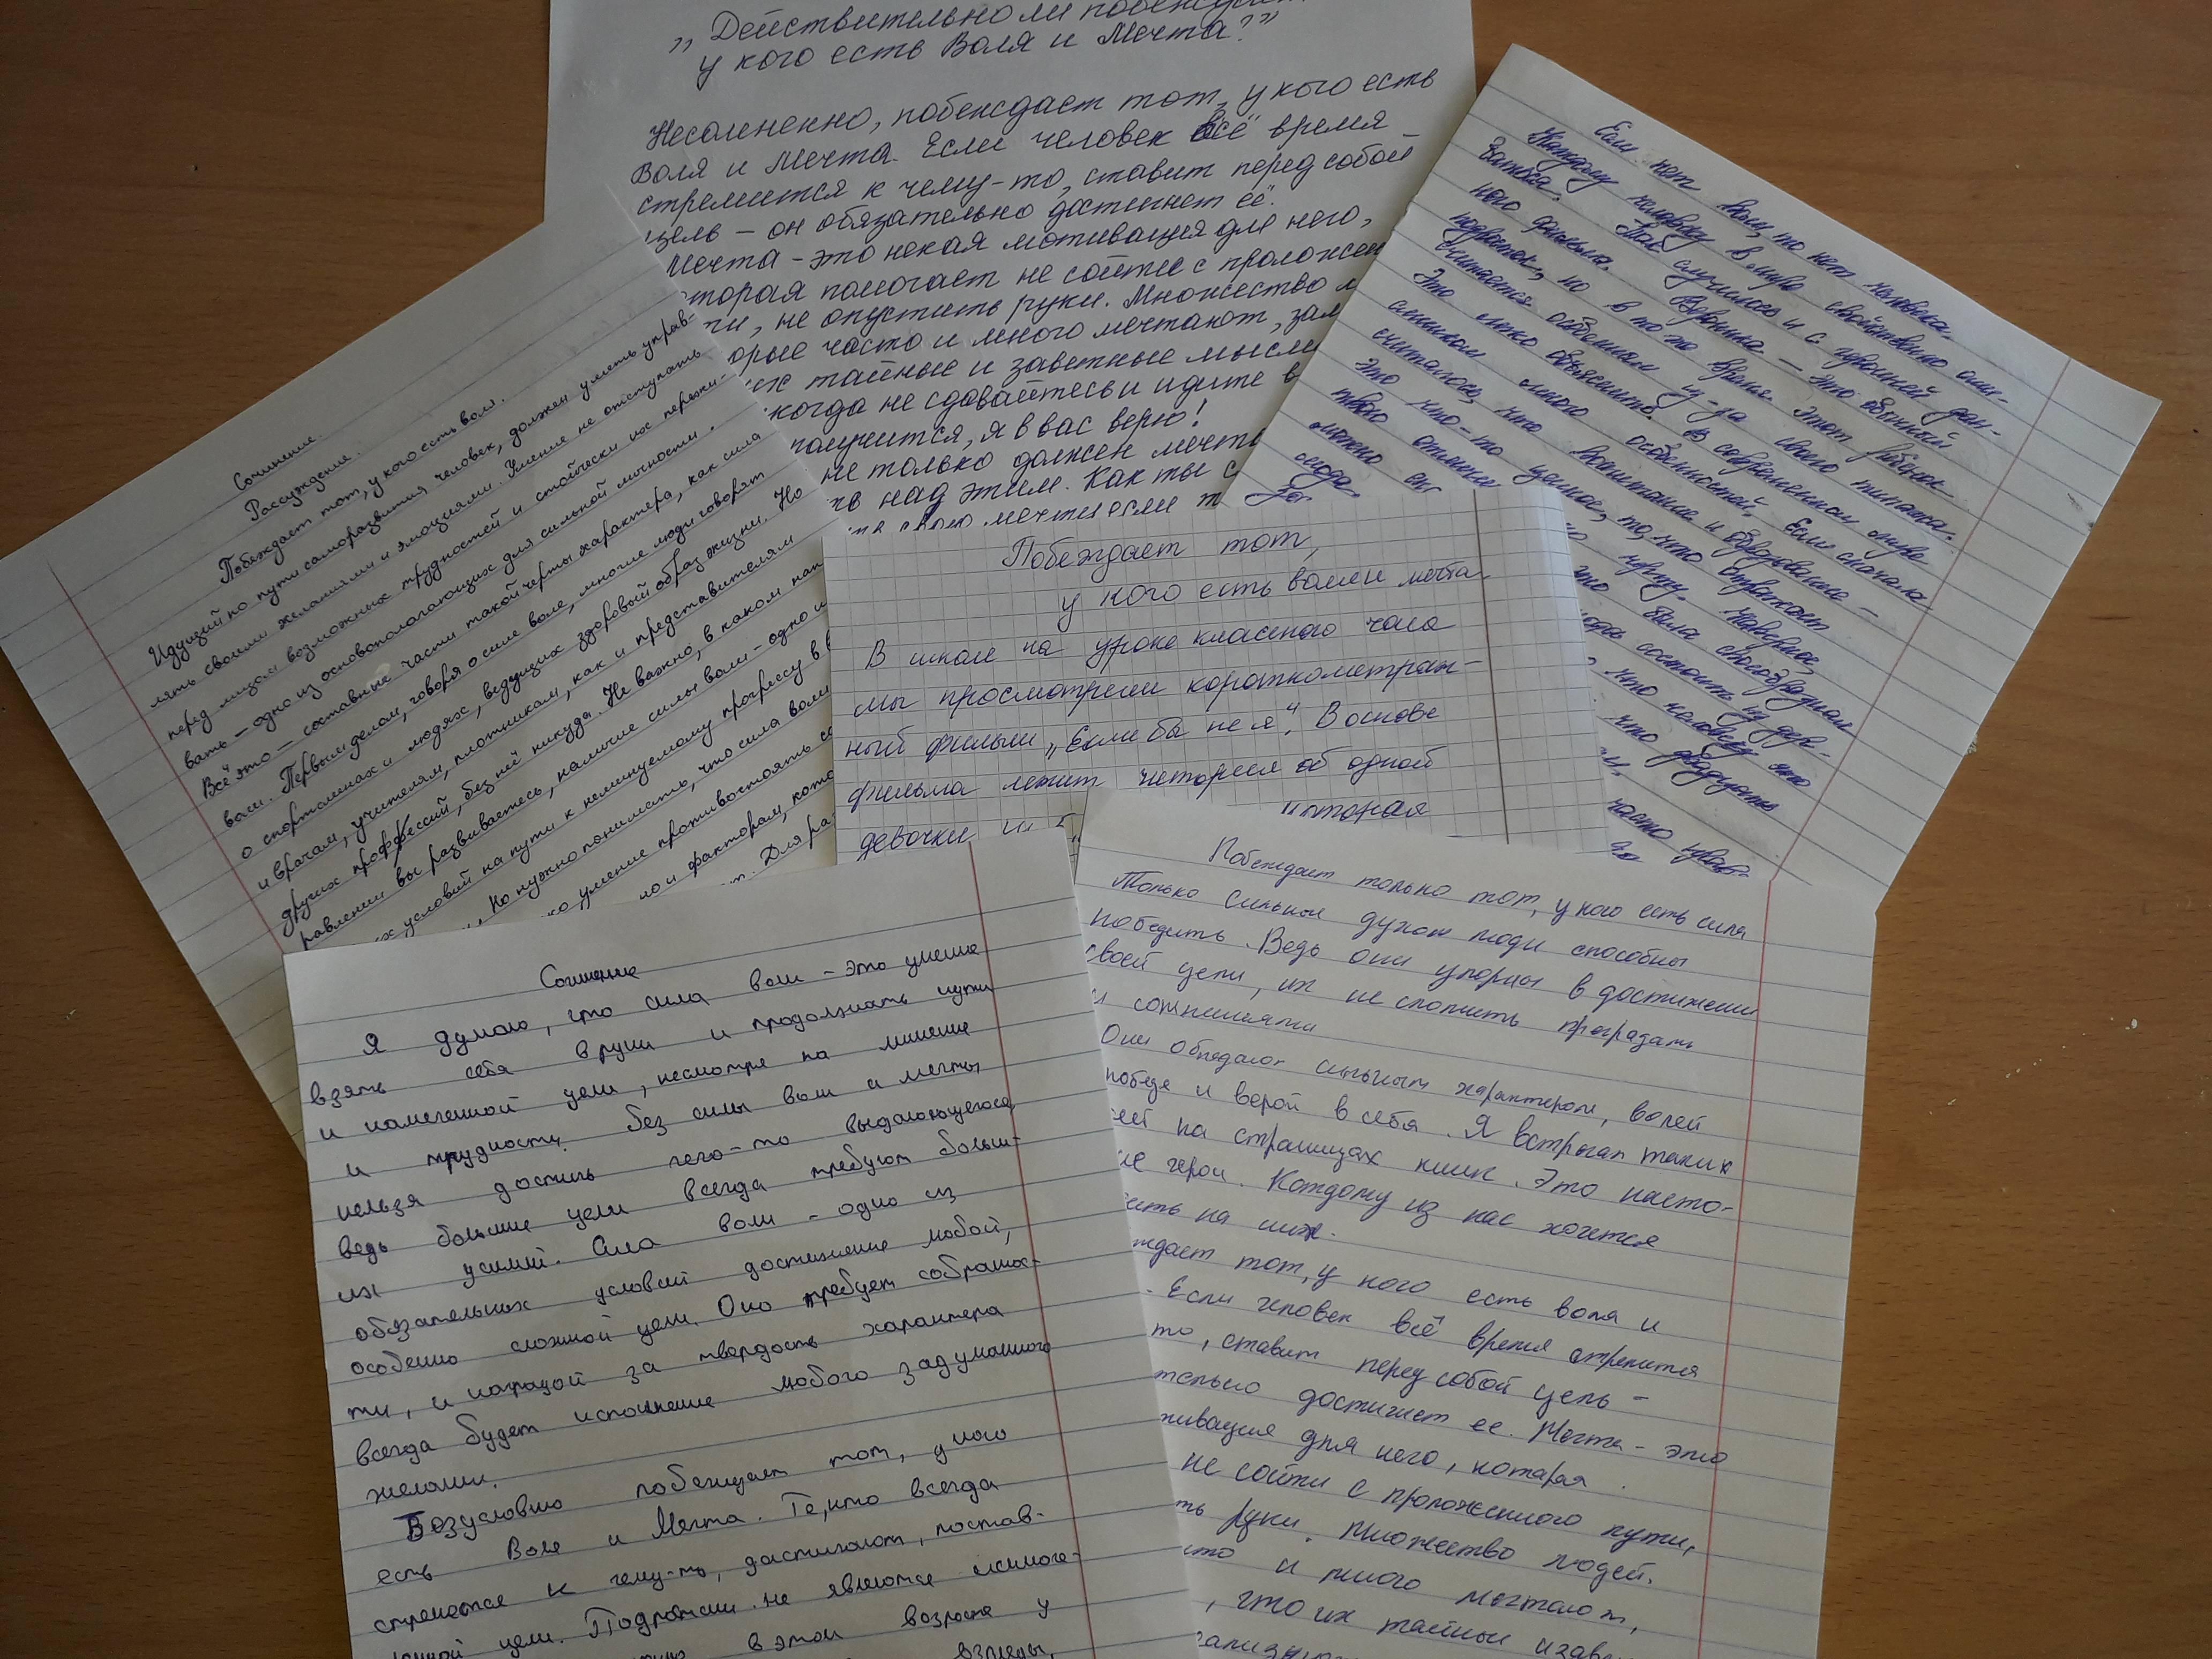 „Действительно ли побеждает
у кого есть Воля и Мечта?"
Несомненно, побеждает тот, у кого есть
Воля и Мечта. Если человек всё время
стремится к чему-то, ставит перед собой
цель – он обязательно достигнет её.
Мечта – это некая мотивация для него,
которая помогает не сойти с проложен
ти, не опустить руки. Множество л
орые часто и много мечтают, зам
их тайные и заветные мысли
когда не сдавайтесь и идите в
получится, я в вас верю!
не только должен мечта
ть над этим. Как ты с
свою мечту если т
Если нет воли, то нет человека.
Каждому человеку в мире свойственно оши-
баться. Так случилось и с героиней дан-
ного фильма. Вероника — это обычный
подросток, но в то же время этот ребёнок
считается особенным из-за своего
Это легко объяснить. В современном мире
слишком много особенностей. Если сначала
считалось, что воспитание и образование –
это что-то ценное, то, что отражает
твою
можно
люде
Да
черту. Наверное,
это была своеобразная
состоит из дер-
что человеку это
что двадцать
часто
Сочинение.
Рассуждение.
Побеждает тот, у кого есть воля.
Идущий по пути саморазвития человек, должен уметь управ-
лять своими желаниями и эмоциями. Умение не отступать
перед лицом возможных трудностей и стойчески их пережи-
вать – одно из основополагающих для сильной личности.
Всё это – составные части такой черты характера, как сила
воли. Первым делом, говоря о силе воли, многие люди говорят
о спортсменах и людях, ведущих здоровый образ жизни. Но
и врачам, учителям, плотникам, как и представителям
других профессий, без неё никуда. Не важно, в каком нап
равлении вы развиваетесь, наличие силы воли – одно и
х условий на пути к неминуемому прогрессу в
Но нужно понимать, что сила воли
ко умение противостоять со
но и факторам, кото
т. Для ра
Побеждает тот,
у кого есть воля и мечта
В школе на уроке классного часа
мы просмотрели короткометраж-
ный фильм „Если бы не я". В основе
фильма лежит история об одной
девочки
которая
Сочинение
Я думаю, что сила воли – это умение
взять себя в руки и продолжать идти
к намеченной цели, несмотря на мнение
и трудности. Без силы воли и мечты
нельзя достичь чего-то выдающегося,
ведь большие цели всегда требуют больш-
их усилий. Сила воли – одно из
обязательных условий достижение любой,
особенно сложной цели. Она требует собранос-
ти, и наградой за твердость характера
всегда будет исполнение любого задуманного
желания.
Безусловно побеждает тот, у кого
есть Воля и Мечта. Те, кто всегда
стремется к чему-то, достигают, постав-
ленной цели. Подростки не являются исключе-
в этом возрасте у
взгляды,
Побеждает только тот, у кого есть сила
Только сильные духом люди способны
победить. Ведь они упорны в достижении
своей цели, их не сломить преградами
и сомнениями
Они обладают сильным характером, волей
победе и верой в себя. Я встречал таких
ей на страницах книг. Это насто-
ие герои. Каждому из нас хочется
быть на них.
ждает тот, у кого есть воля и
. Если человек всё время стремится
то, ставит перед собой цель –
тельно достигнет ее. Мечта – это
ивация для него, которая
не сойти с проложенного пути,
ть руки. Множество людей.
сто и много мечтают,
, что их тайные и завет